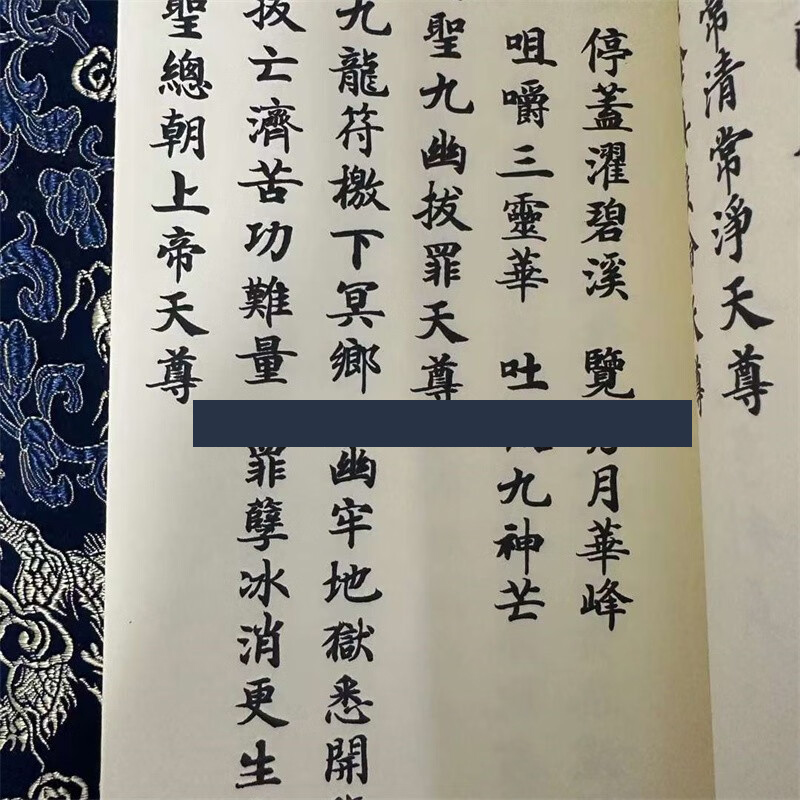 常清常淨天尊
停蓋濯碧溪 覽 月華峰
咀嚼三靈華 吐 九神芒
聖九幽拔罪天尊
九龍符檄下冥鄉 幽牢地獄悉開
拔亡濟苦功難量 罪孽冰消更生
聖總朝上帝天尊